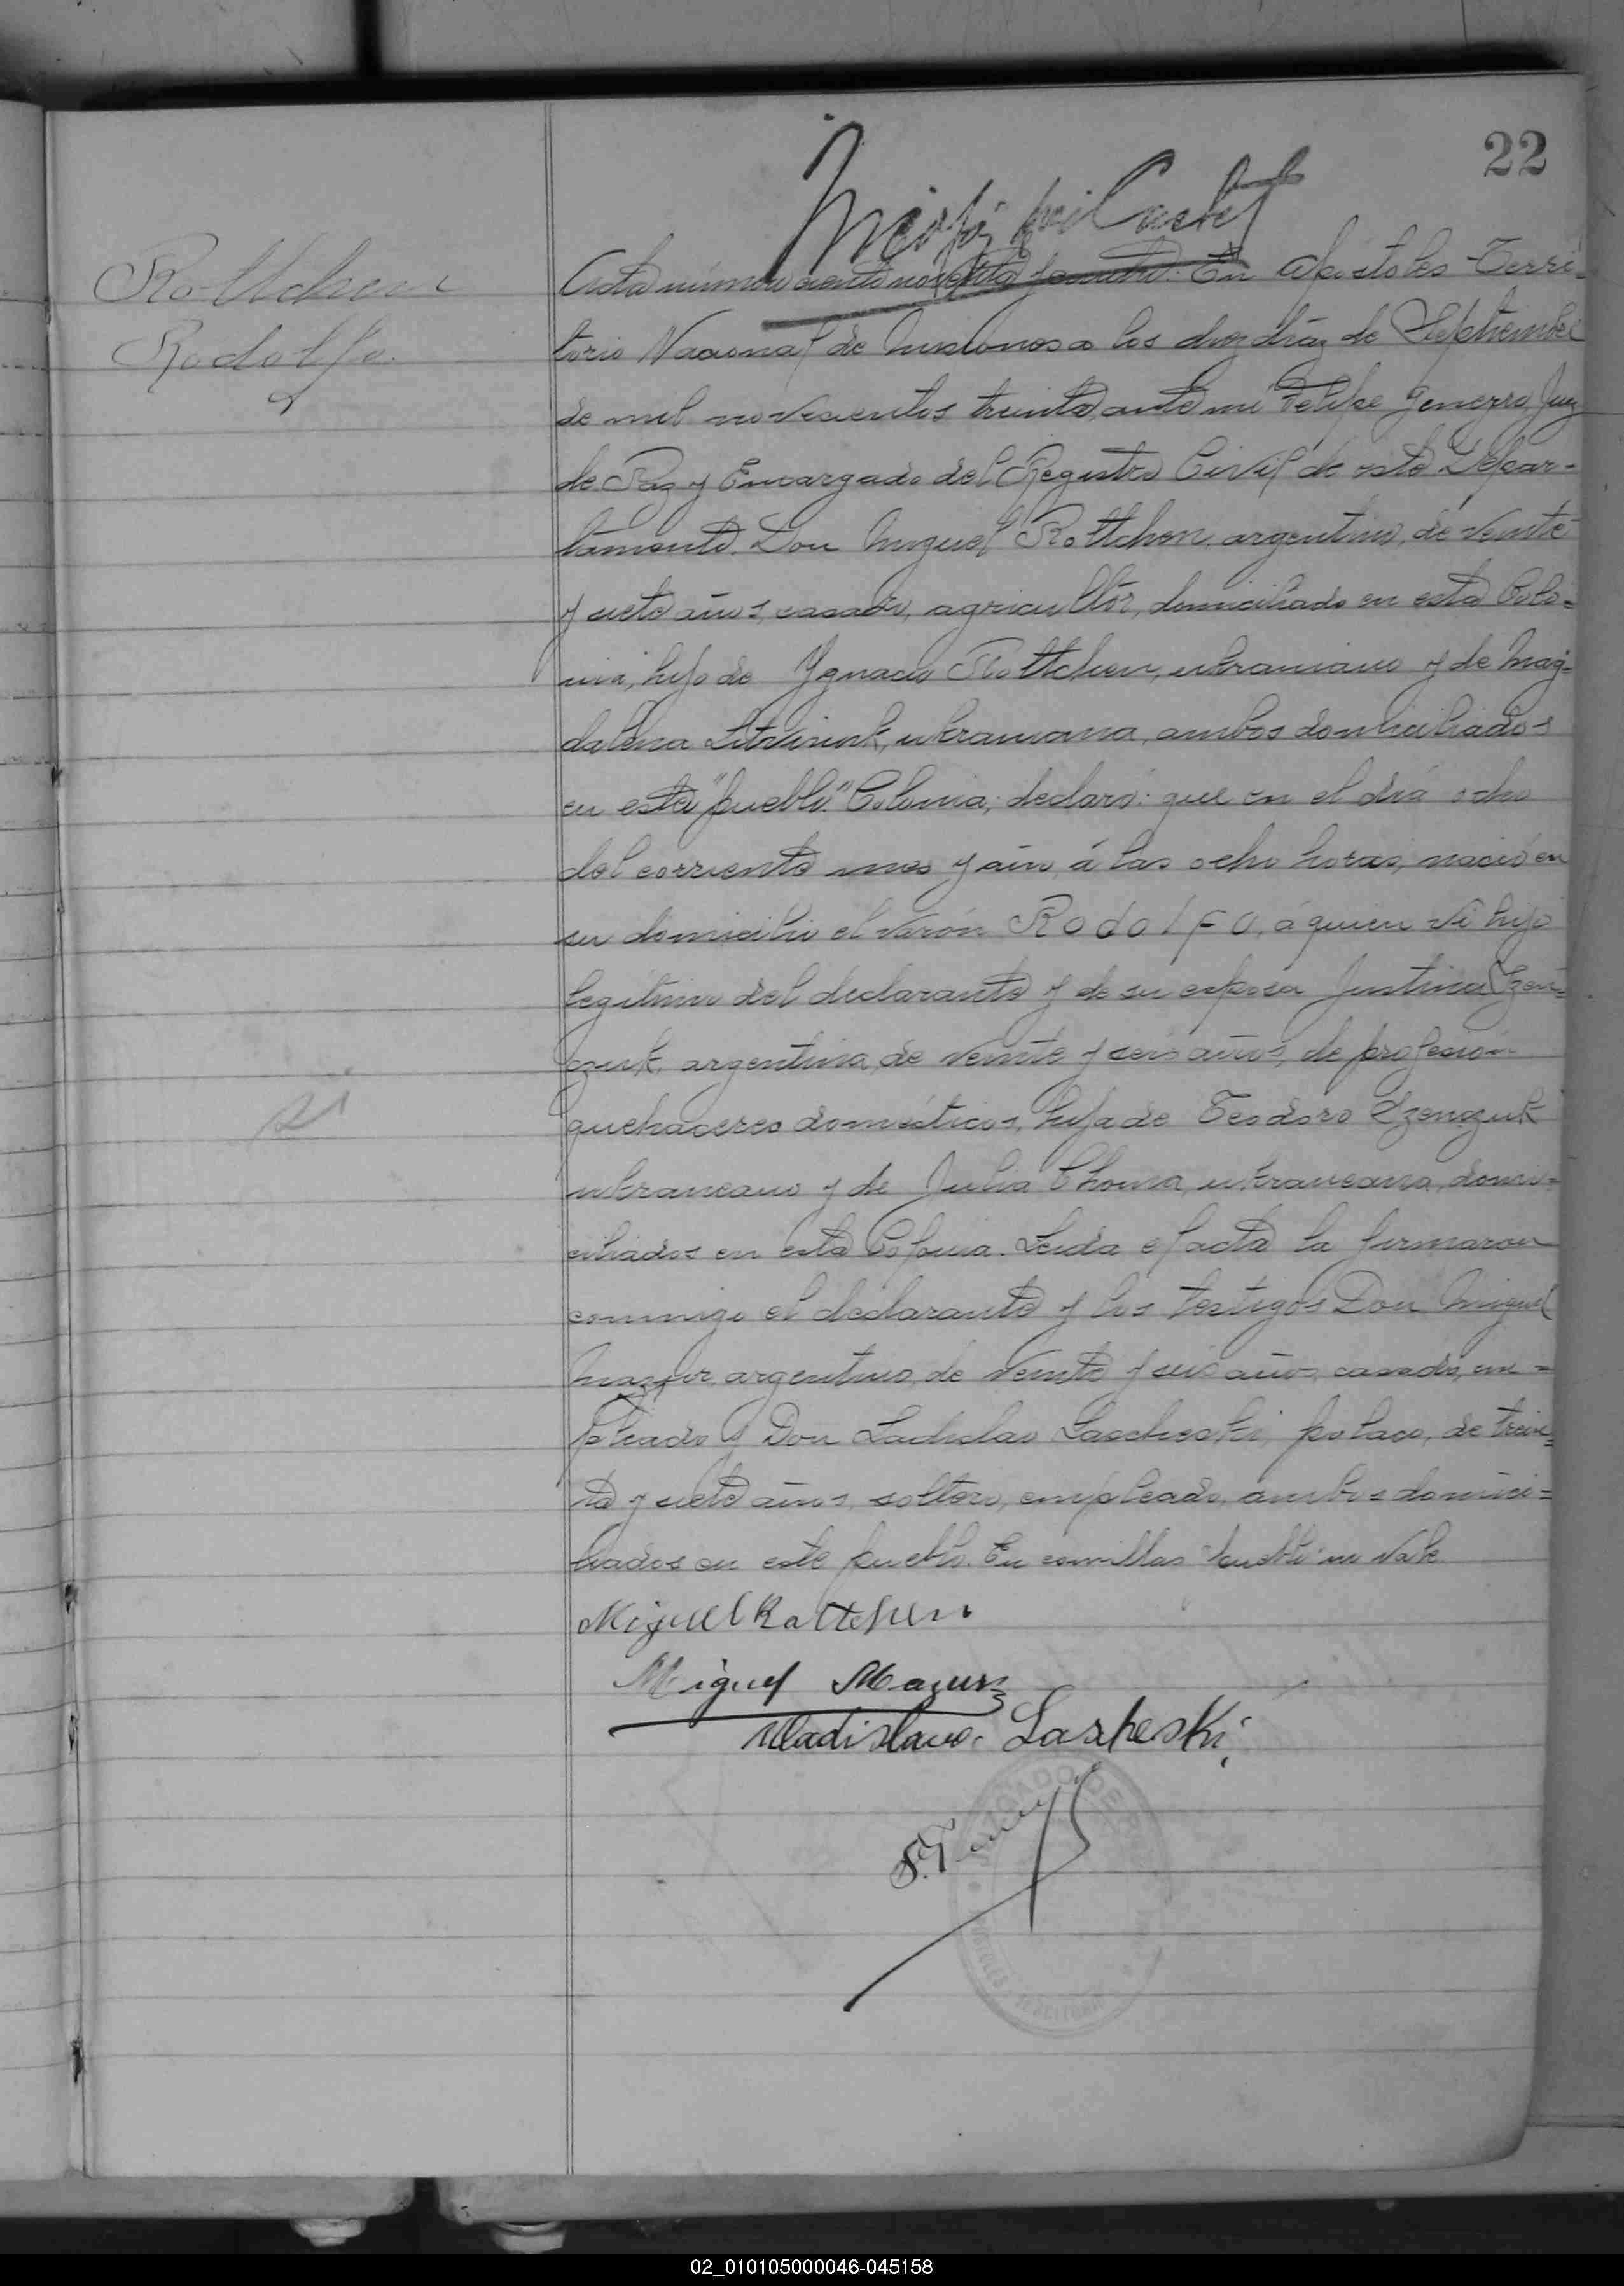 22
Rottchen
Rodolfo.
Acta número ciento noventa y cuatro: En Apóstoles Terri-
torio Nacional de Misiones a los diez días de Septiembre
de mil novecientos treinta, ante mi Felipe Generro, Juez
de Paz y Encargado del Registro Civil de este Depar-
tamento. Don Miguel Rottchen, argentino, de veinte
y siete años, casado, agricultor, domiciliado en esta Colo=
nia, hijo de Ygnacio Rottchen, ukraniano y de Mag=
dalena ukraniana, ambos domiciliados
en este "pueblo" Colonia; declaró: que en el día ocho
del corriente mes y año, á las ocho horas, nació en
su domicilio el varón Rodolfo, á quien vi hijo
legitimo del declarante y de su esposa Justina Szen=
czuk, argentina, de veinte y seis años, de profesión
quehaceres domésticos, hija de Teodoro Szenczuk
ukraneano y de Julia Choma, ukraneana, domi=
ciliados en esta Colonia. Leida el acta la firmaron
conmigo el declarante y los testigos Don Miguel
Mazur, argentino, de veinte y seis años, casado, em=
pleado y Don Ladislao Lascheski, polaco, de trein=
ta y siete años, soltero, empleado, ambos domici=
liados en este pueblo. En comillas "pueblo" no vale.
Miguel Rottchen
Miguel Mazur
Wladislavo Lasheski
JUZGADO DE PAZ
02_010105000046-045158